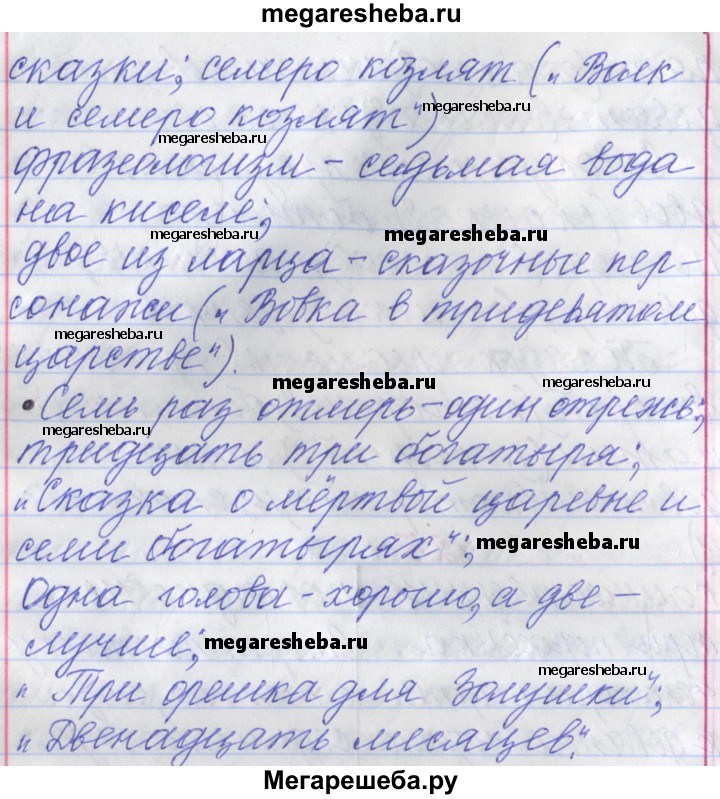 megaresheba.ru
сказки; семеро козлят („Волк
и семеро козлят")
megaresheba.ru
megaresheba.ru
фразеологизм – седьмая вода
на киселе;
megaresheba.ru
megaresheba.ru
двое из ларца – сказочные пер-
сонажи („Вовка в тридевятом
megaresheba.ru
царстве").
megaresheba.ru
megaresheba.ru
• Семь раз отмерь – один отрежь;
megaresheba.ru
тридцать три богатыря;
„Сказка о мёртвой царевне и
семи богатырях";
megaresheba.ru
Одна голова – хорошо, а две –
лучше;
megaresheba.ru
megaresheba.ru
„Три орешка для Золушки";
„Двенадцать месяцев".
Мегарешеба.ру